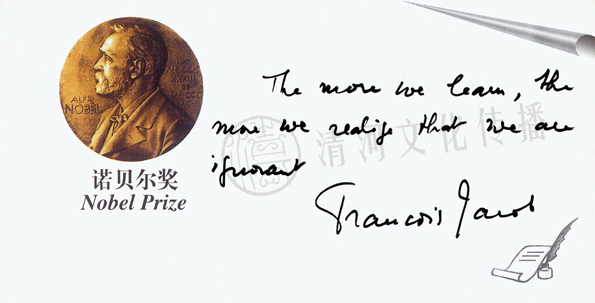 ALFR.
NOBEL
诺贝尔奖
Nobel Prize
The more we learn, the
more we realize that we are
ignorant
François Jacob
清河文化传播